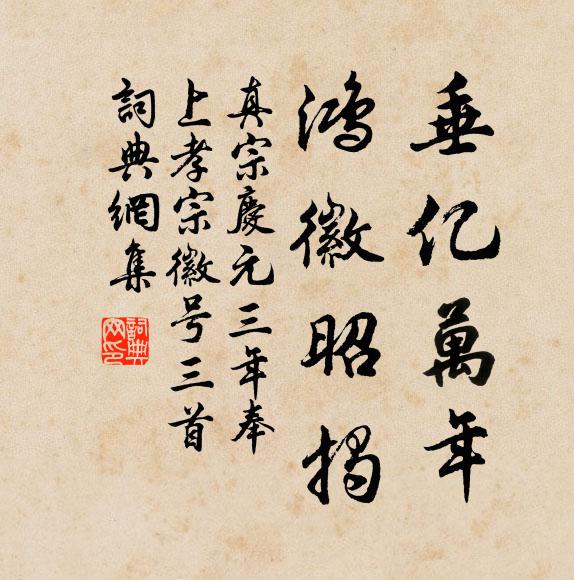 垂亿萬年
鴻徽昭揭
真宗慶元三年奉
上孝宗徽号三首
詞典網集
詞典網印